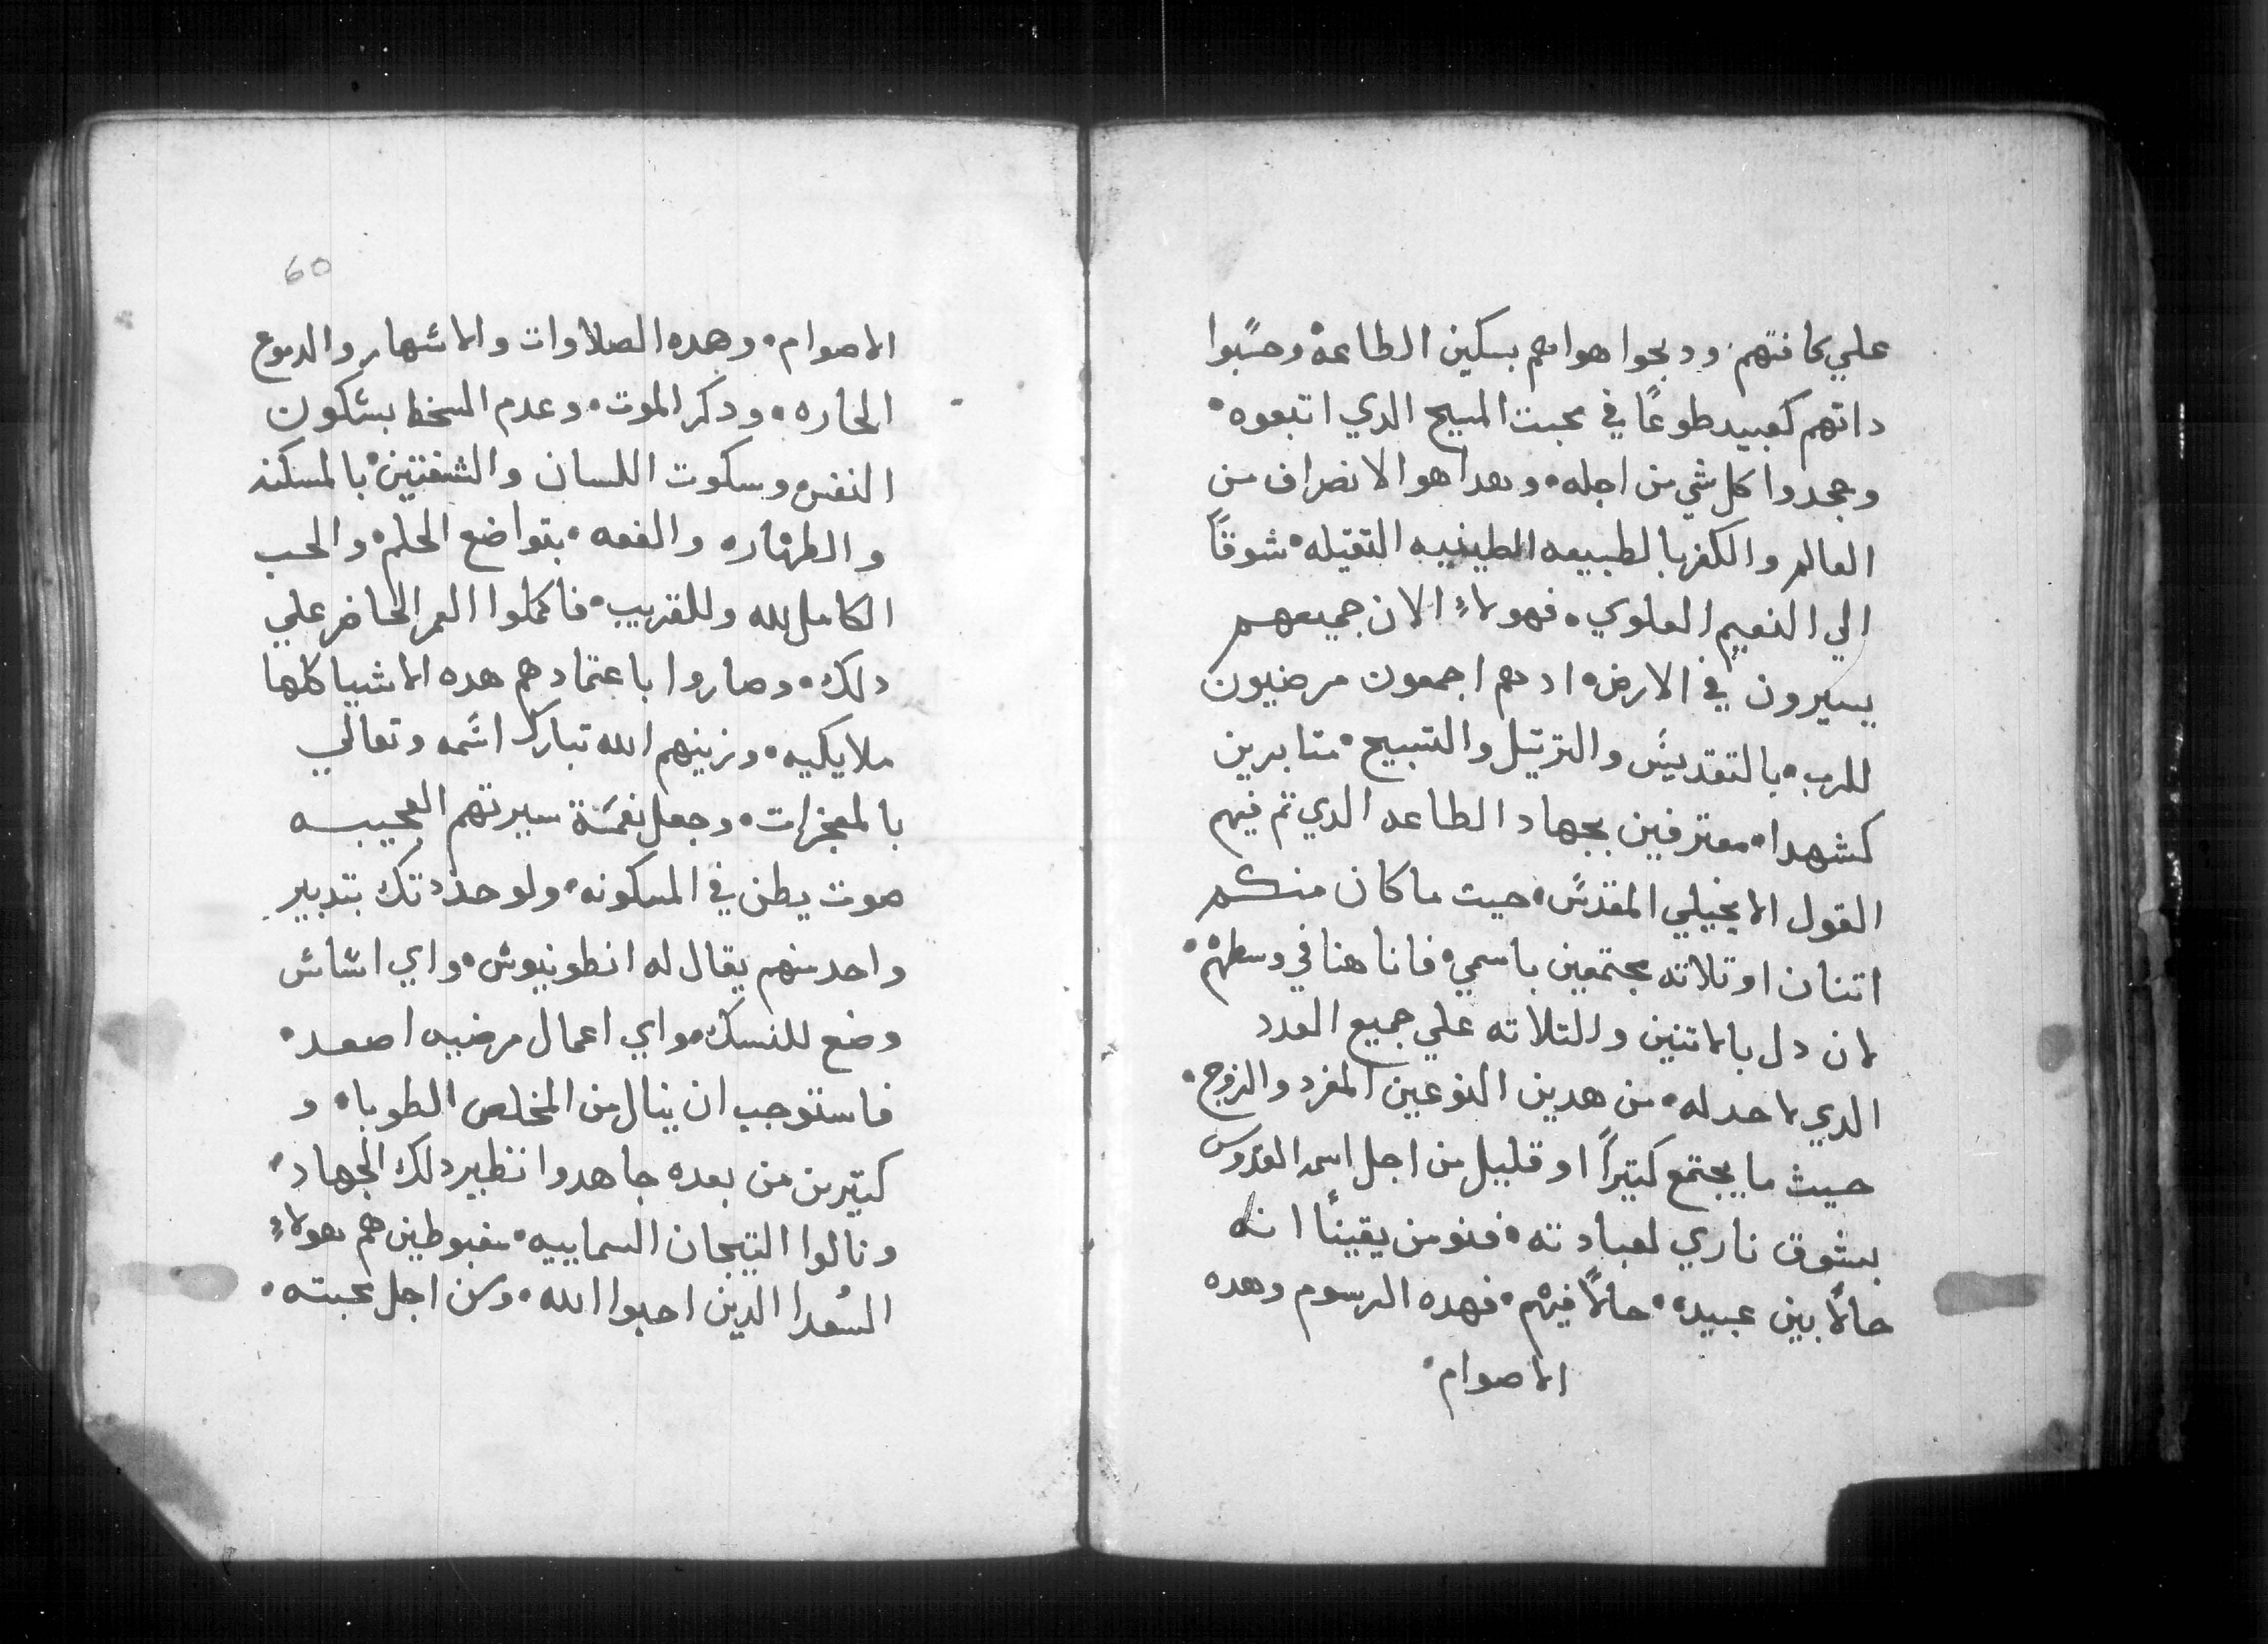 علي كافتهم. ودبحوا هواهم بسكين الطاعة وحسًبوا
داتهم كعبيد طوعًا في محبت المسيح الدي اتبعوه.
وجحدوا كل شي من اجله. وهدا هو الانصراف من
العالم والكفر بالطبيعه الطينيه التقيله. شوقًا
الي النعيم العلوي. فهولاءِ الان جميعهم
يسيرون في الارض. ادهم اجمعون مرضيون
للرب. بالتقديسَ والترتيل والتسبيح. متابرين
كشهدا. معترفين بجهاد الطاعه الدي تم فيهم
القول الانجيلي المقدسَ. حيت ما كان منكم
اتنان او تلاته مجتمعين باسمي. فانا هنا في وسطهم.
لان دل بالاتنين والتلاته علي جميع العدد
الدي لاحد له. من هدين النوعين المفرد والزوج.
حيث ما يجتمع كتيرًا او قليل من اجل اسمه القدوس
بشوق ناري لعبادته. فنومن يقينًا انه
حالًا بين عبيده. حالًا فيهم. فهده الرسوم وهده
الاصوام.
60
الاصوام. وهده الصلاوات والاسهار والدموع
الحاره. ودكر الموت. وعدم السخط بسكون
النفس وسكوت اللسان والشفتين. بالمسكنه
والطهاره والعفه. بتواضع الحلم. والحب
الكامل لله وللقريب. فاكملوا العمر الحاضر علي
دلك. وصاروا باعتمادهم هده الاشيا كلها
ملايكيه. وزينهم الله تبارك اسَمه وتعالي
بالمعجزات. وجعل نغمَة سيرتهم العجيبه
صوت يطن في المسكونه. ولو حددتك بتدبير
واحد منهم يقال له انطونيوس. واي اساس
وضع للنسك. واي اعمال مرضيه اصعد.
فاستوجب ان ينال من المخلص الطوبا. و
كتيرين من بعده جاهدوا نظير دلك الجهاد.
ونالوا التيجان السماييه. مغبوطين هم هولاءِ
السُعدا الدين احبوا الله. ومن اجل محبته.